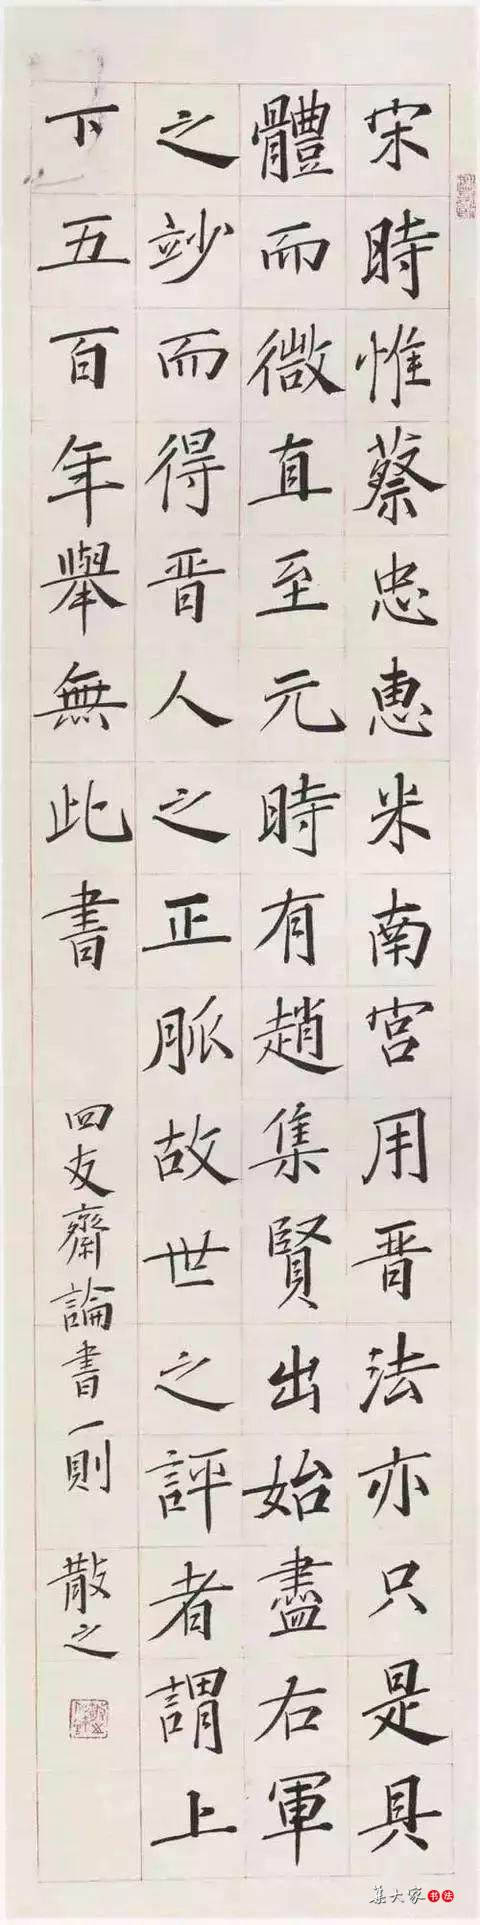 宋時惟蔡忠惠米南宮用晋法亦只是具
體而微直至元時有趙集賢出始盡右軍
之竗而得晋人之正脈故世之評者謂上
下五百年舉無此書
四友齋論書一則 散之
集大家书法